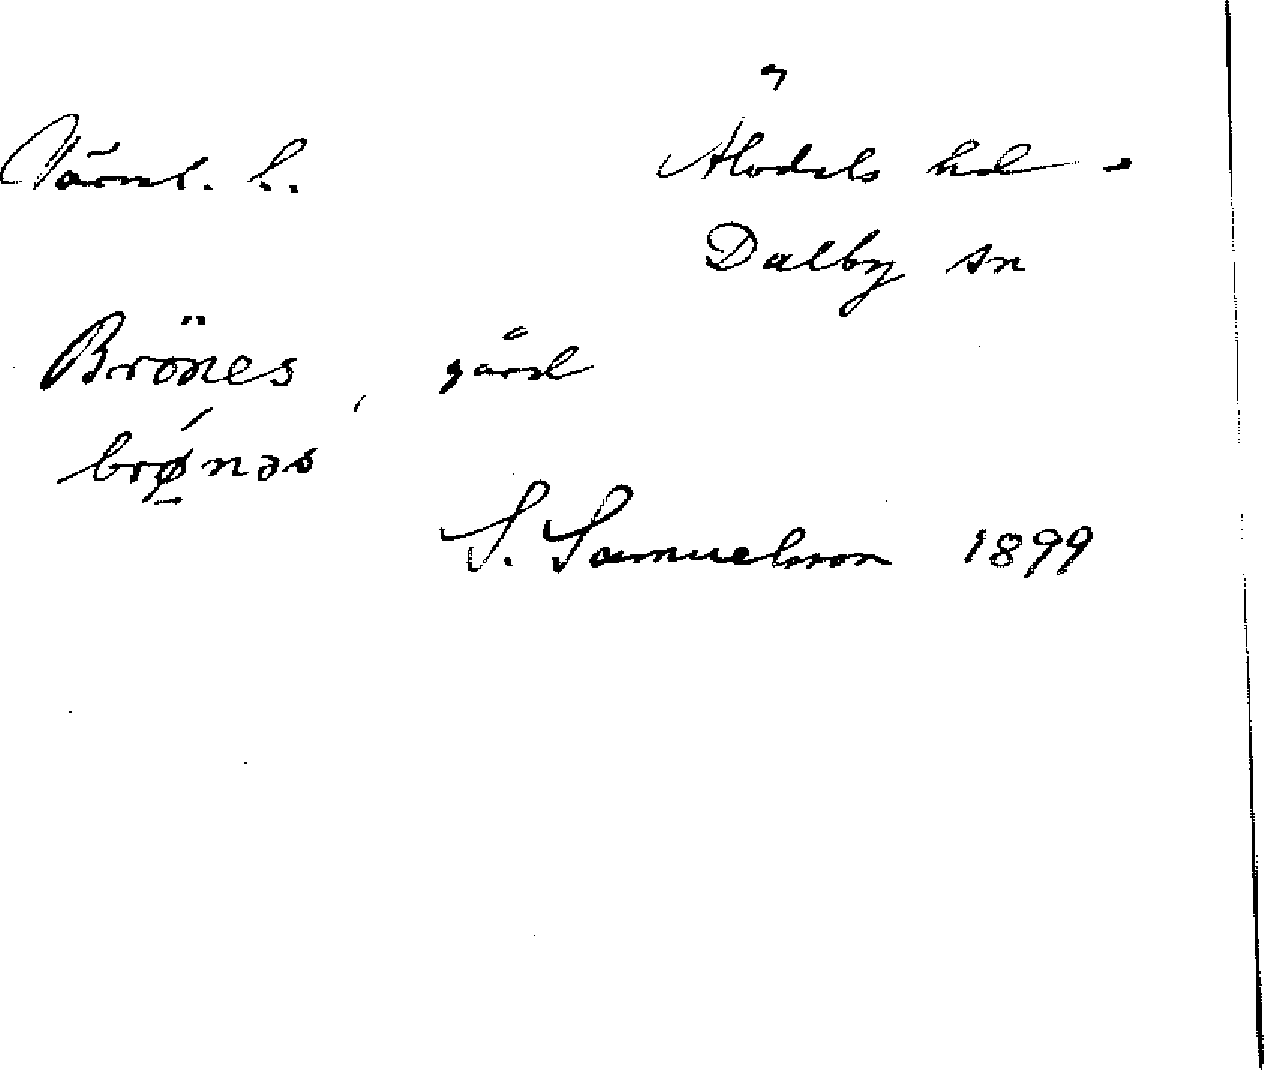 Värml. l. Älvdals hd
Dalby sn
Brönes, gård
brǿ̲nəs
S. Samuelsson 1899